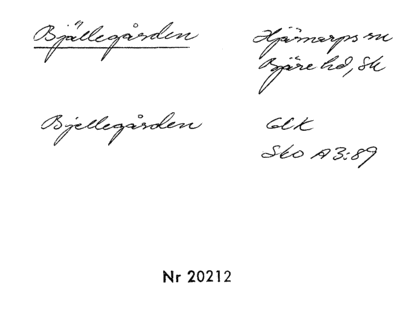 Bjällegården
Hjärnarps sn
Bjäre hd, Sk
Bjellegården
GEK
Sko A3:89
Nr 20212